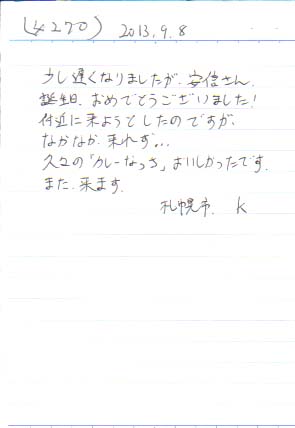 (4270) 2013.9.8
少し遅くなりましたが、安信さん、
誕生日、おめでとうございました!
付近に来ようとしたのですが、
なかなか、来れず...
久々の「カレーなっさ」おいしかったです。
また、来ます。
札幌市、K